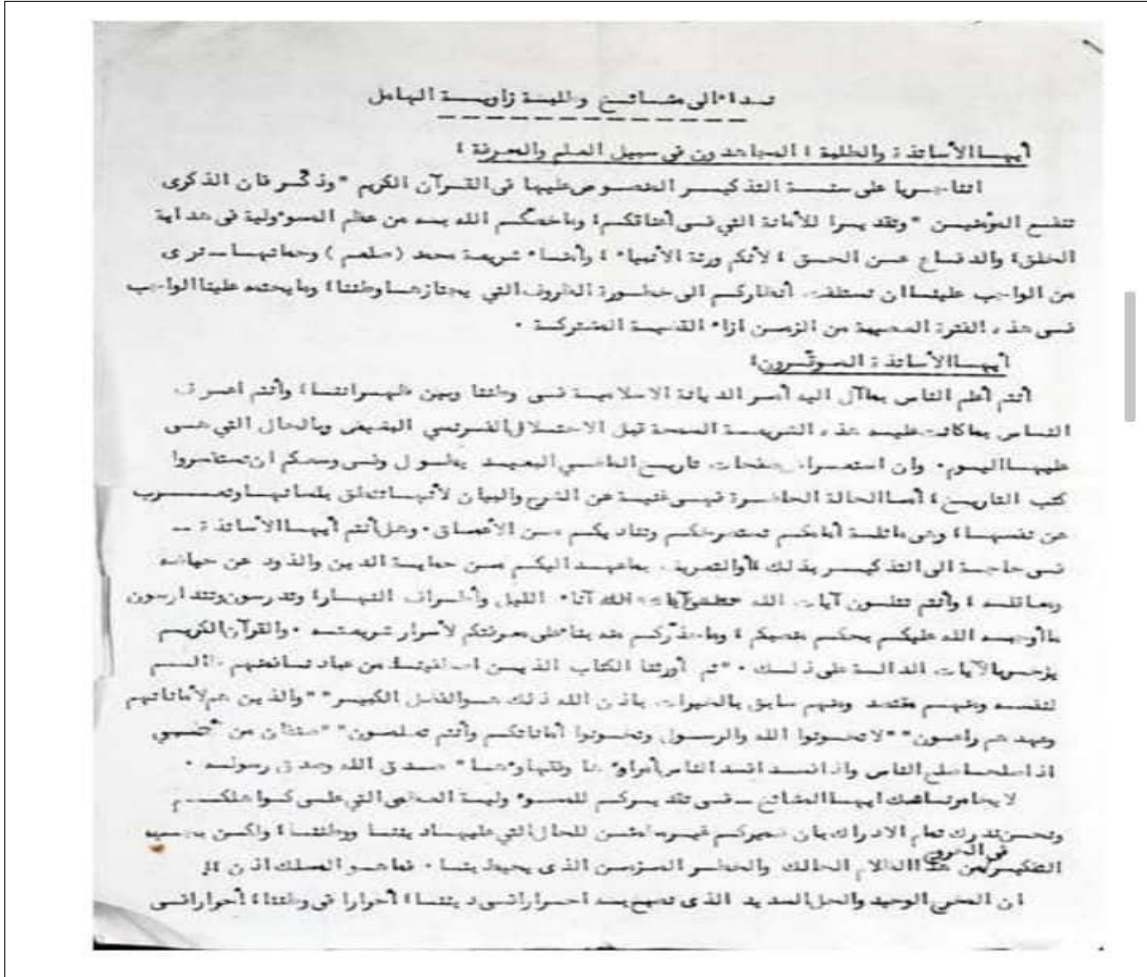 نداء الى مشائخ وطلبة زاوية الهامل
أيها الأساتذة والطلبة ؛ المجاهدون في سبيل العلم والمعرفة ؛
اننا جريا على سنة التذكير المنصوص عليها في القرآن الكريم "وذكّر فان الذكرى
تنفع المؤمنين" وتقديرا للأمانة التي في أعناقكم؛ وماخصّكم الله به من عظم المسؤولية في هداية
الخلق؛ والدفاع عن الحق ؛ لأنكم ورثة الأنبياء ؛ وأمناء شريعة محمد (صلعم) وحماتها ــ نرى
من الواجب علينا ان نستلفت أنظاركم الى خطورة الظروف التي يجتازها وطننا؛ ومايحتمه علينا الواجب
في هذه الفترة العصيبة من الزمن ازاء القضية المشتركة .
أيها الأساتذة الموقّرون؛
أنتم أعلم الناس بماآل اليه أمر الديانة الاسلامية في وطننا وبين ظهرانينا؛ وأنتم اعرف
الناس بماكانت عليه هذه الشريعة السمحة قبل الاحتلال الفرنسي البغيض وبالحال التي هي
عليها اليوم. وان استعراض صفحات تاريخ الماضي البعيد يطول وفي وسعكم ان تستفسروا
كتب التاريخ؛ أما الحالة الحاضرة فهي غنية عن الشرح والبيان لأنها تنطق بلسانها وتعرب
عن نفسها؛ وهي ماثلة أمامكم تستصرخكم وتناديكم من الأعماق. وهل أنتم أيها الأساتذة ــ
في حاجة الى التذكير بذلك أوالتعريف بماعهد اليكم من حماية الدين والذود عن حياضه
ومعاقله ؛ وأنتم تتلون آيات الله آناء الليل وأطراف النهار؛ وتدرسون وتتدارسون
ماأوجبه الله عليكم بحكم منصبكم ؛ وماحذّركم منه بناء على معرفتكم لأسرار شريعته . والقرآن الكريم
يزخر بالآيات الدالة على ذلك . "ثم أورثنا الكتاب الذين اصطفينا من عبادنا فمنهم ظالم
لنفسه ومنهم مقتصد ومنهم سابق بالخيرات باذن الله ذلك هو الفضل الكبير" "والذين هم لأماناتهم
وعهدهم راعون" "لا تخونوا الله والرسول وتخونوا أماناتكم وأنتم تعلمون" "صنفان من أمتي
اذا صلحا صلح الناس واذا فسدا فسد الناس أمراؤها وفقهاؤها" صدق الله وصدق رسوله .
لا يخامرنا شك ايها المشائخ ــ في تقديركم للمسؤولية العظمى التي على كواهلكم
ونحن ندرك تمام الادراك بان ضميركم غير مطمئن للحال التي عليها ديننا ووطننا؛ ولكن يجب
التفكير في الخروج من هذا الظلام الحالك والخطر المزمن الذي يحيط بنا . فما هو المسلك اذن ؟!
ان المخرج الوحيد والحل السديد الذي نصبح به احرارا في ديننا؛ أحرارا في وطننا؛ أحرارا في